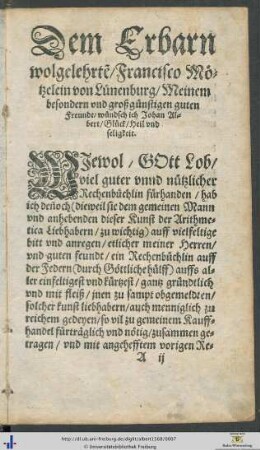 Dem Erbarn
wolgelehrtẽ/Francisco Mö-
tzelein von Lünenburg/Meinem
besondern vnd großgünstigen guten
Freunde/wündsch ich Johan Al-
bert/Glück/Heil vnd
seligkeit.
WJewol/GOtt Lob/
viel guter vnnd nützlicher
Rechenbüchlin fürhanden/hab
ich deñoch (dieweil sie dem gemeinen Mann
vnd anhebenden dieser Kunst der Arithme-
tica Liebhabern/zu wichtig) auff vielfeltige
bitt vnd anregen/etlicher meiner Herren/
vnd guten feundt/ein Rechenbüchlin auff
der Federn (durch Göttliche hülff) auffs al-
ler einfeltigest vnd kürtzest/gantz gründtlich
vnd mit fleiß/jnen zu sampt obgemeldten/
solcher kunst liebhabern/auch menniglich zu
reichem gedeyen/so vil zu gemeinem Kauff-
handel fürträglich vnd nötig/zusammen ge-
tragen/vnd mit angehefftem vorigen Re-
A ij
http://dl.ub.uni-freiburg.de/diglit/albert1568/0007
© Universitätsbibliothek Freiburg